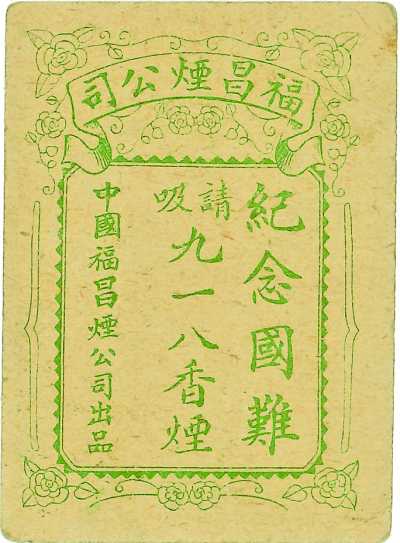 福昌煙公司
紀念國難
請吸
九一八香煙
中國福昌煙公司出品